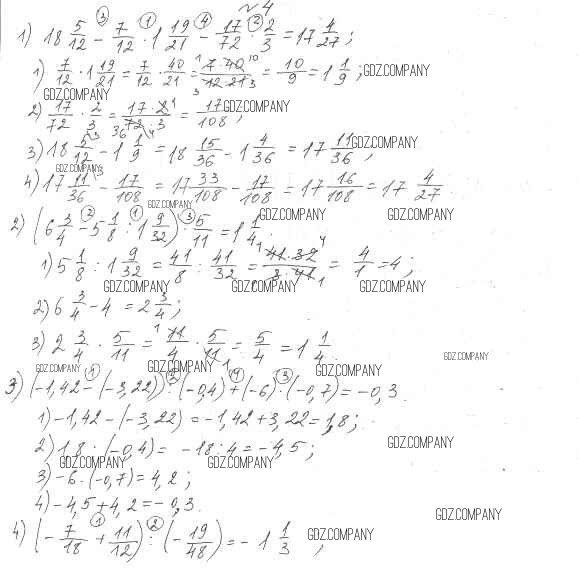 №4
1) 18 5/12 - 7/12 · 1 19/21 - 17/72 · 2/3 = 17 4/27;
1) 7/12 · 1 19/21 = 7/12 · 40/21 = 7·40/12·21 = 10/9 = 1 1/9; GDZ.COMPANY
GDZ.COMPANY
2) 17/72 · 2/3 = 17·2/72·3 = 17/108; GDZ.COMPANY
3) 18 5/12 - 1 1/9 = 18 15/36 - 1 4/36 = 17 11/36; GDZ.COMPANY
GDZ.COMPANY
4) 17 11/36 - 17/108 = 17 33/108 - 17/108 = 17 16/108 = 17 4/27.
GDZ.COMPANY
2) (6 3/4 - 5 1/8 : 1 9/32) · 5/11 = 1 1/4. GDZ.COMPANY GDZ.COMPANY
1) 5 1/8 : 1 9/32 = 41/8 : 41/32 = 41·32/8·41 = 4/1 = 4;
GDZ.COMPANY GDZ.COMPANY GDZ.COMPANY
2) 6 3/4 - 4 = 2 3/4;
3) 2 3/4 · 5/11 = 11/4 · 5/11 = 5/4 = 1 1/4.
GDZ.COMPANY GDZ.COMPANY GDZ.COMPANY GDZ.COMPANY
3) (-1,42 - (-3,22)) : (-0,4) + (-6) · (-0,7) = -0,3.
1) -1,42 - (-3,22) = -1,42 + 3,22 = 1,8; GDZ.COMPANY
2) 1,8 : (-0,4) = -18 : 4 = -4,5; GDZ.COMPANY
GDZ.COMPANY GDZ.COMPANY
3) -6 · (-0,7) = 4,2;
4) -4,5 + 4,2 = -0,3.
GDZ.COMPANY
4) (-7/18 + 11/12) : (-19/48) = -1 1/3; GDZ.COMPANY